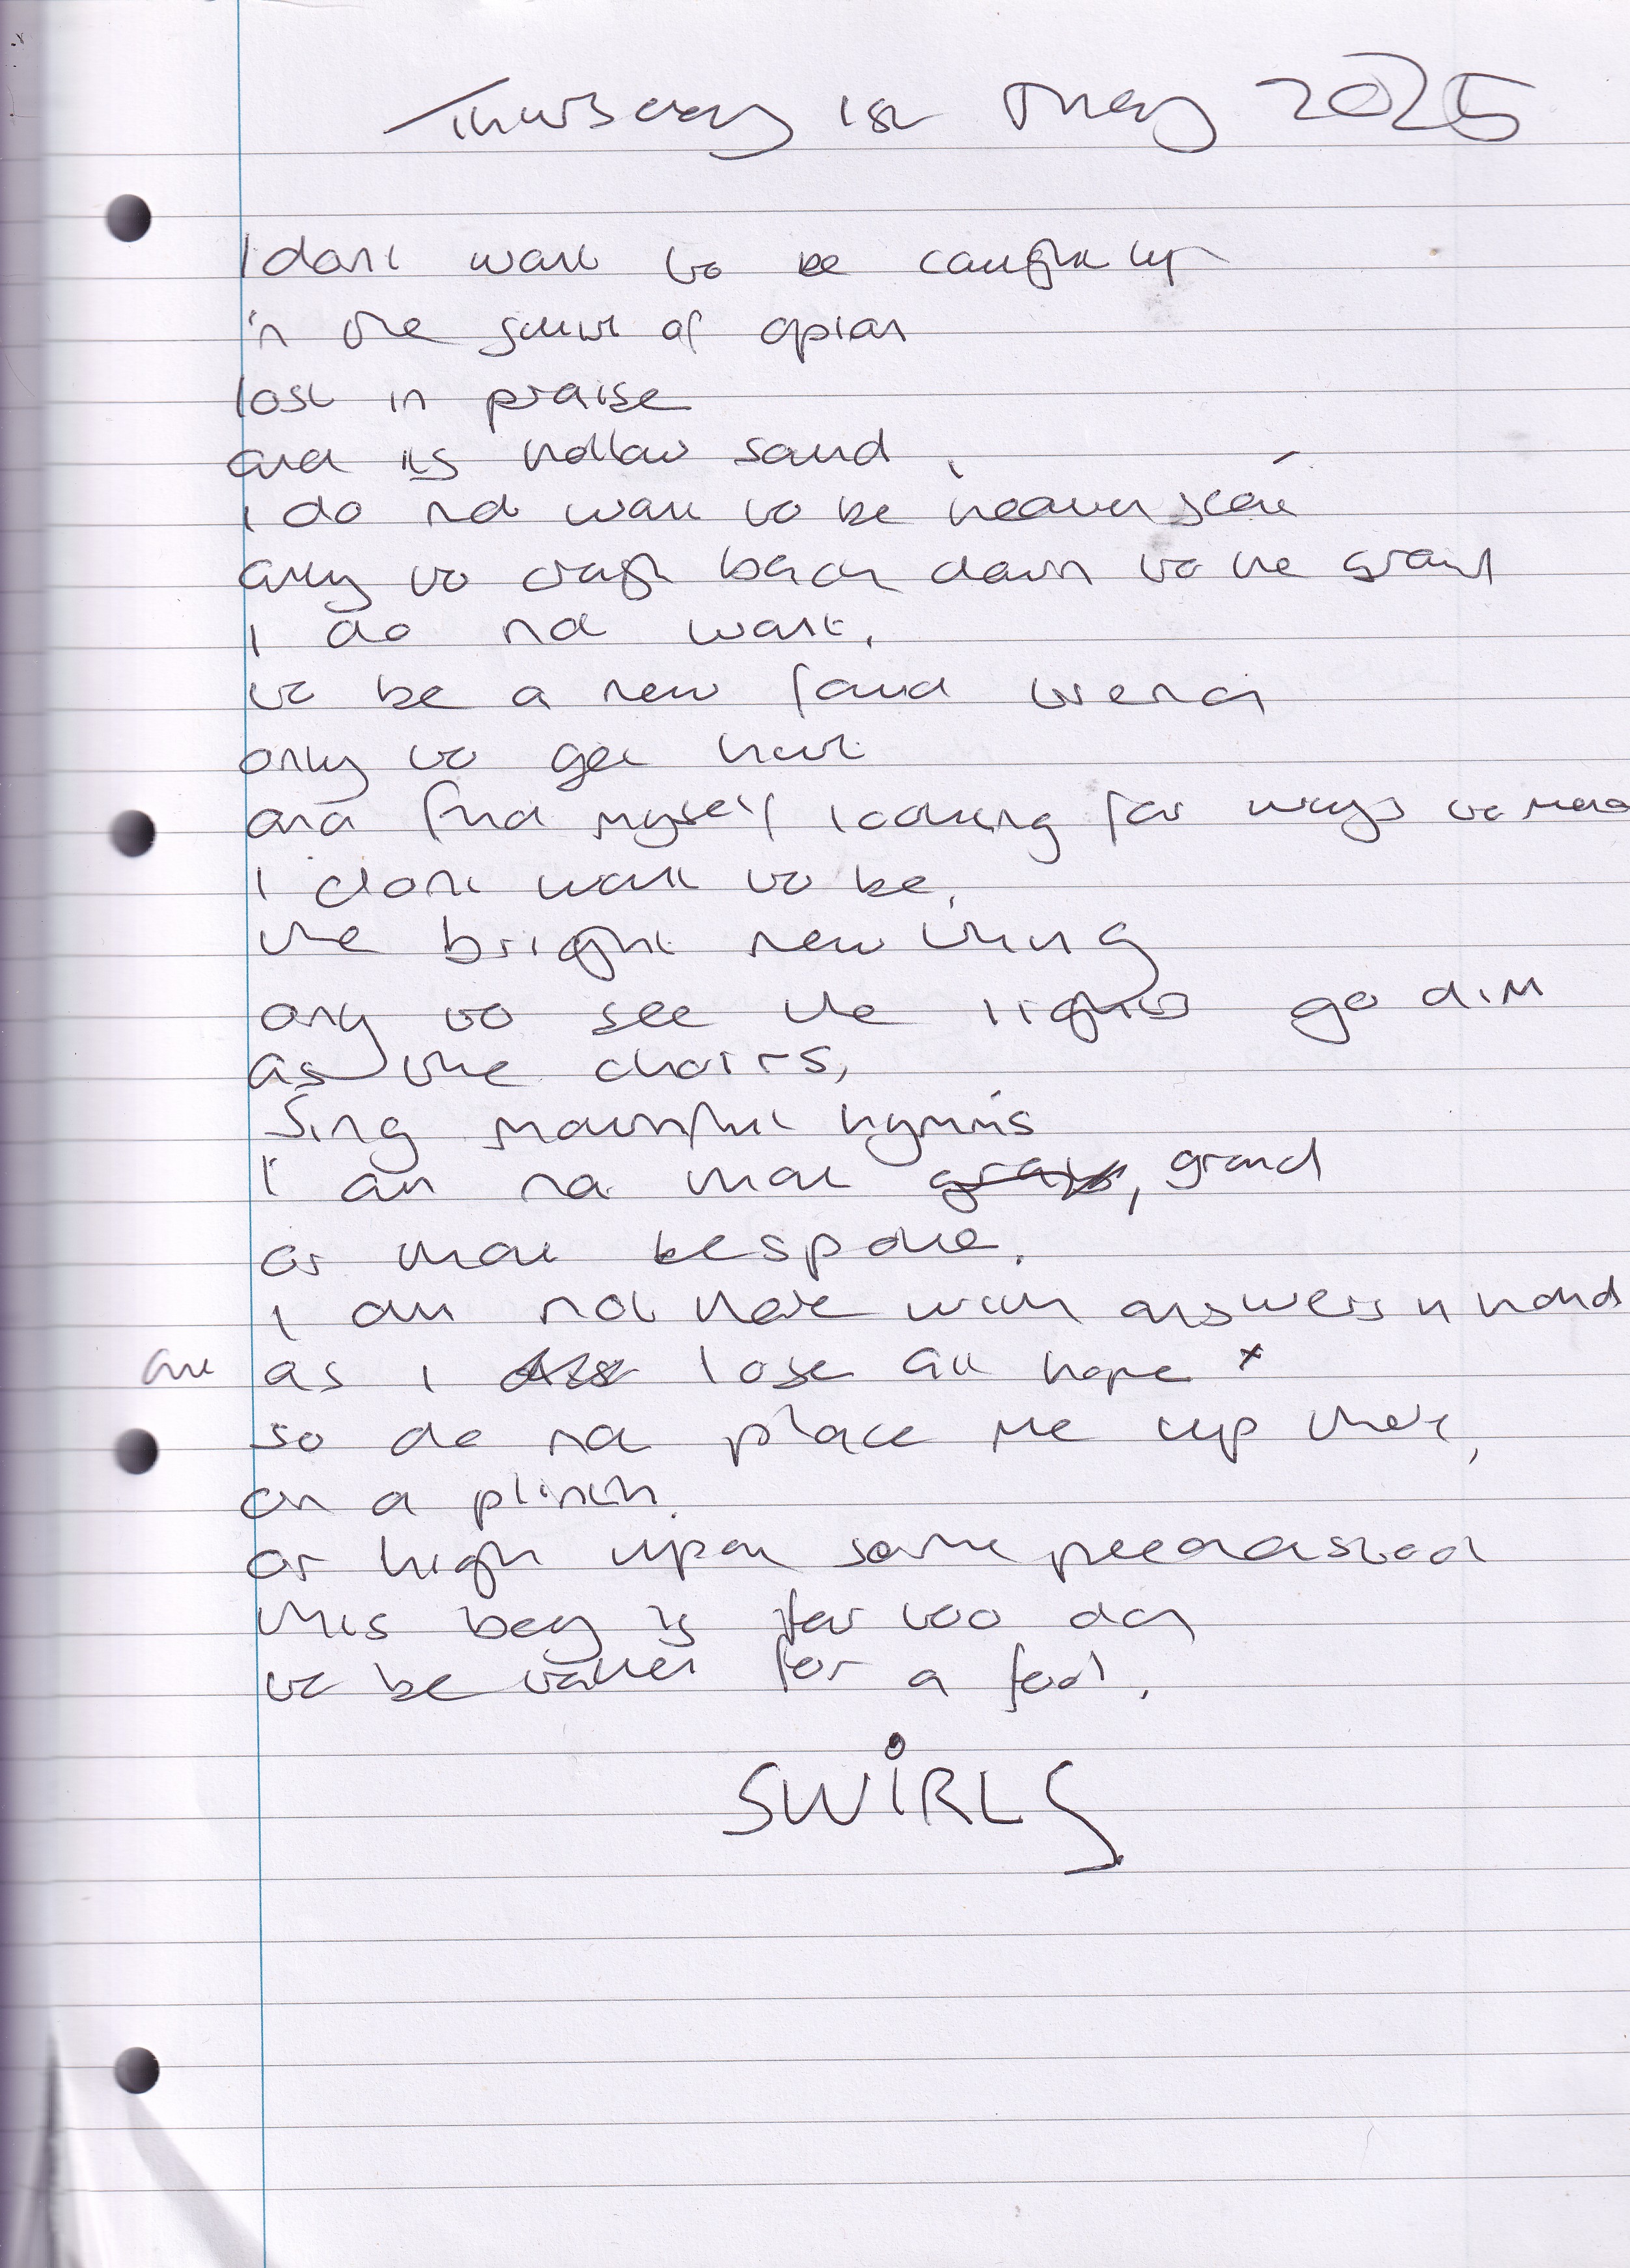 Thursday 1st May 2025
I dont want to be caught up
in the of opion
lost in praise
and its hollow sound
I do not want to be heaven
only to crash back down to the ground
I do not want,
to be a new found
only to get hurt
and find myself looking for ways to
I dont want to be,
the bright new thing
only to see the lights go dim
as the choirs,
Sing mournful hymns
I am not that grand
or that bespoke.
I am not here with answers in hand
as I lose all hope *
so do not place me up there,
on a plinth
or high upon some
this boy is far too
to be taken for a fool.
SWIRLS